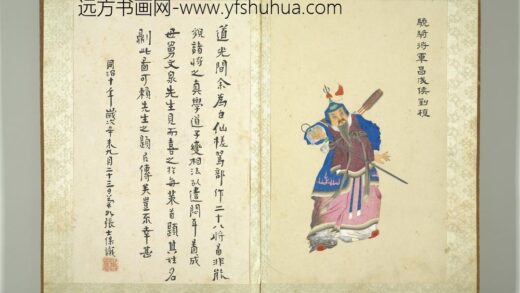 远方书画网-www.yfshuhua.com
驍騎將軍昌成侯劉植
道光間余為白仙槎駕部作二十八將圖非能
親諸將之真學道子變相法以遣悶耳圖成
母舅文泉先生見而喜之於每葉首題其姓名
則此圖可賴先生之題以傳矣豈不幸甚
同治十年歲次辛未九月二十三日
張士保識